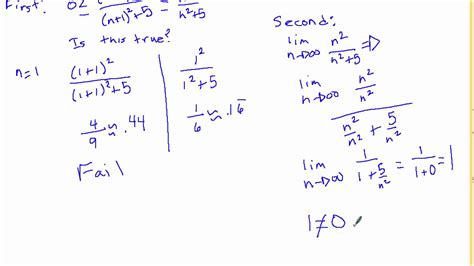 First: 0≤ (n+1)²/((n+1)²+5) ≤ n²/(n²+5)
Is this true?
n=1
(1+1)²/((1+1)²+5) | 1²/(1²+5)
4/9 ≈ .44 | 1/6 ≈ .16
Fail
Second:
lim n→∞ n²/(n²+5) ⇒
lim n→∞ (n²/n²)/(n²/n² + 5/n²)
lim n→∞ 1/(1+5/n²) = 1/(1+0) = 1
1≠0